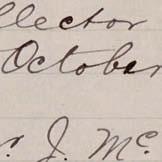 llector
October
r. J. Mc.